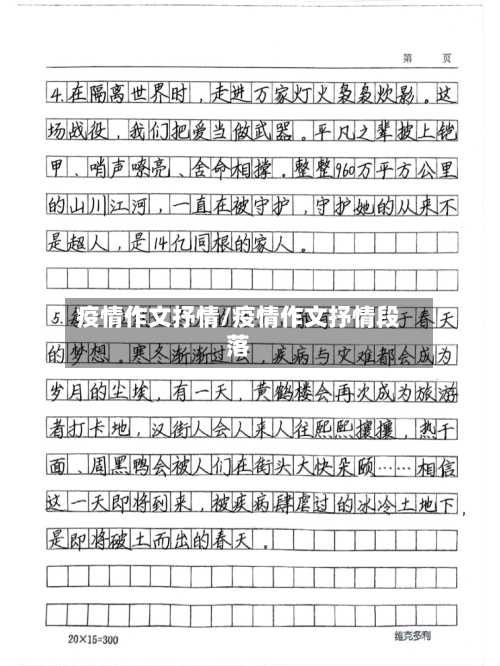 第 页
4.在隔离世界时，走进万家灯火袅袅炊影。这
场战役，我们把爱当做武器。平凡之辈披上铠
甲、哨声嘹亮、舍命相撑。整整960万平方公里
的山川江河，一直在被守护，守护她的从来不
是超人，是14亿同根的家人。
疫情作文抒情/疫情作文抒情段
落
5. 于春天
的梦想。寒冬渐渐过去，疾病与灾难都会成为
岁月的尘埃，有一天，黄鹤楼会再次成为旅游
者打卡地，汉街人会人来人往熙熙攘攘，热干
面、周黑鸭会被人们在街头大快朵颐……相信
这一天即将到来，被疾病肆虐过的冰冷土地下，
是即将破土而出的春天。
20×15=300 维克多利